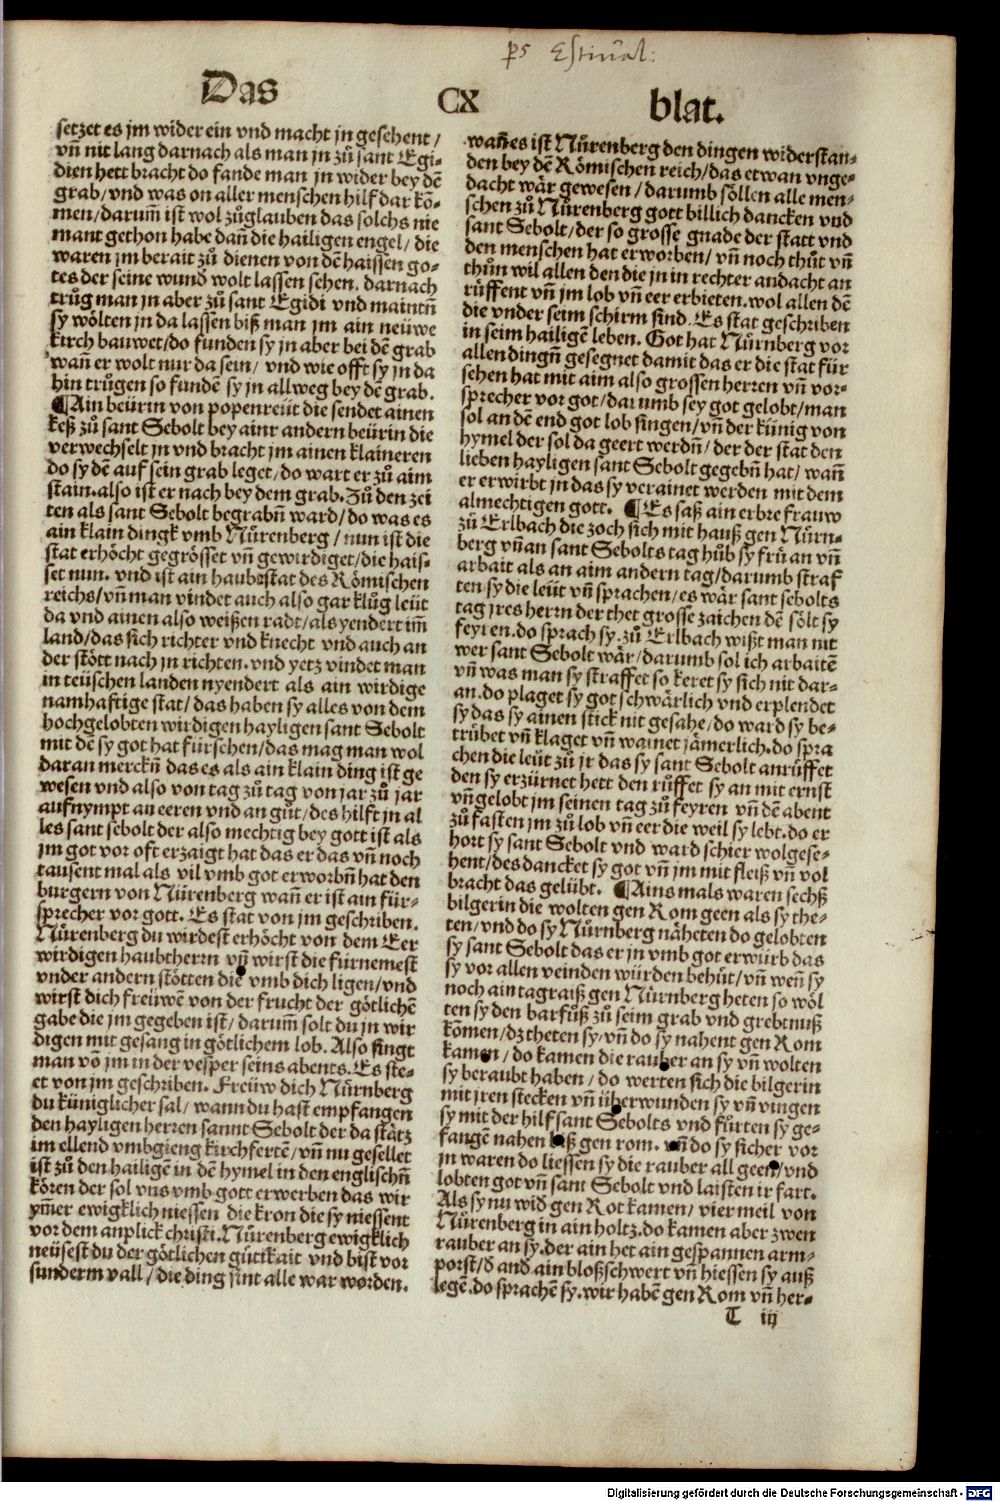 ps Estiual:
Das CX blat.
setzet es jm wider ein vnd macht jn gesehent /
vn̄ nit lang darnach als man jn zů sant Egi-
dien hett bracht do fande man jn wider bey dē
grab/vnd was on aller menschen hilf dar kō-
men/darum̄ ist wol zůglauben das solchs nie
mant gethon habe dan̄ die hailigen engel/ die
waren jm berait zů dienen von dē haissen go-
tes der seine wund wolt lassen sehen. darnach
trůg man jn aber zů sant Egidi vnd maintn̄
sy wölten jn da lassen biß man jm ain neüwe
kirch bauwet/do funden sy jn aber bei dē grab
wan̄ er wolt nur da sein/ vnd wie offt sy jn da
hin trůgen so fundē sy jn allweg bey dē grab.
¶Ain beürin von popenreüt die sendet ainen
keß zů sant Sebolt bey ainr andern beürin die
verwechselt jn vnd bracht jm ainen klaineren
do sy dē auf sein grab leget/do wart er zů aim
stain.also ist er nach bey dem grab. Zů den zei
ten als sant Sebolt begrabn̄ ward/do was es
ain klain dingk vmb Nürenberg / nun ist die
stat erhöcht gegrösset vn̄ gewirdiget/die hais-
set nun. vnd ist ain haubtstat des Römischen
reichs/vn̄ man vindet auch also gar klůg leüt
da vnd ainen also weißen radt/als yendert im̄
land/das sich richter vnd knecht vnd auch an
der stött nach jn richten.vnd yetz vindet man
in teüschen landen nyendert als ain wirdige
namhaftige stat/das haben sy alles von dem
hochgelobten wirdigen hayligen sant Sebolt
mit dē sy got hat fürsehen/das mag man wol
daran merckn̄ das es als ain klain ding ist ge
wesen vnd also von tag zů tag von jar zů jar
aufnympt an eeren vnd an gůt/des hilft jn al
les sant sebolt der also mechtig bey gott ist als
jm got vor oft erzaigt hat das er das vn̄ noch
tausent mal als vil vmb got erworbn̄ hat den
burgern von Nürenberg wan̄ er ist ain für-
sprecher vor gott. Es stat von jm geschriben.
Nürenberg du wirdest erhöcht von dem Eer
wirdigen haubtherrn vn̄ wirst die fürnemest
vnder andern stötten die vmb dich ligen/vnd
wirst dich freüwē von der frucht der götlichē
gabe die jm gegeben ist/ darum̄ solt du jn wir
digen mit gesang in götlichem lob. Also singt
man vō jm in der vesper seins abents. Es ste-
et von jm geschriben. Freüw dich Nürnberg
du küniglicher sal/ wann du hast empfangen
den hayligen herren sannt Sebolt der da stätz
im ellend vmbgieng kirchfertē/vn̄ nu gesellet
ist zů den hailigē in dē hymel in den englischn̄
kören der sol vns vmb gott erwerben das wir
ym̄er ewigklich niessen die kron die sy niessent
vor dem anplick christi. Nürenberg ewigklich
neüsest du der götlichen gütikait vnd bist vor
sunderm vall / die ding sint alle war worden.
wan̄ es ist Nürenberg den dingen widerstan-
den bey dē Römischen reich/das etwan vnge-
dacht wär gewesen / darumb söllen alle men-
schen zů Nürenberg gott billich dancken vnd
sant Sebolt/der so grosse gnade der statt vnd
den menschen hat erworben/ vn̄ noch thůt vn̄
thůn wil allen den die jn in rechter andacht an
rüffent vn̄ jm lob vn̄ eer erbieten.wol allen dē
die vnder seim schirm sind. Es stat geschriben
in seim hailigē leben. Got hat Nürnberg vor
allen dingn̄ gesegnet damit das er die stat für
sehen hat mit aim also grossen herren vn̄ vor-
sprecher vor got/darumb sey got gelobt/man
sol an dē end got lob singen/vn̄ der künig von
hymel der sol da geert werdn̄/der der stat den
lieben hayligen sant Sebolt gegebn̄ hat/ wan̄
er erwirbt jn das sy verainet werden mit dem
almechtigen gott. ¶Es saß ain erbre frauw
zů Erlbach die zoch sich mit hauß gen Nürn-
berg vn̄ an sant Sebolts tag hůb sy frü an vn̄
arbait als an aim andern tag/darumb straf
ten sy die leüt vn̄ sprachen/es wär sant sebolts
tag jres herrn der thet grosse zaichen dē sölt sy
feyren.do sprach sy.zů Erlbach wißt man nit
wer sant Sebolt wär/darumb sol ich arbaitē
vn̄ was man sy straffet so keret sy sich nit dar-
an.do plaget sy got schwärlich vnd erplendet
sy das sy ainen stick nit gesahe/do ward sy be-
trübet vn̄ klaget vn̄ wainet jämerlich.do spra
chen die leüt zů jr das sy sant Sebolt anrüffet
den sy erzürnet hett den rüffet sy an mit ernst
vn̄ gelobt jm seinen tag zů feyren vn̄ dē abent
zů fasten jm zů lob vn̄ eer die weil sy lebt.do er
hort sy sant Sebolt vnd ward schier wolgese-
hent/des dancket sy got vn̄ jm mit fleiß vn̄ vol
bracht das gelübt. ¶Ains mals waren sechß
bilgerin die wolten gen Rom geen als sy the-
ten/vnd do sy Nürnberg näheten do gelobten
sy sant Sebolt das er jn vmb got erwürb das
sy vor allen veinden würden behüt/vn̄ wen̄ sy
noch ain tagraiß gen Nürnberg heten so wöl
ten sy den barfůß zů seim grab vnd grebtnuß
kōmen/dz theten sy/vn̄ do sy nahent gen Rom
kamen / do kamen die rauber an sy vn̄ wolten
sy beraubt haben / do werten sich die bilgerin
mit jren stecken vn̄ überwunden sy vn̄ viengen
sy mit der hilf sant Sebolts vnd fürten sy ge-
fangē nahen biß gen rom. vn̄ do sy sicher vor
jn waren do liessen sy die rauber all geen/vnd
lobten got vn̄ sant Sebolt vnd laisten ir fart.
Als sy nu wid̄ gen Rot kamen/ vier meil von
Nürenberg in ain holtz.do kamen aber zwen
rauber an sy.der ain het ain gespannen arm-
porst/d̄ and̄ ain bloßschwert vn̄ hiessen sy auß
legē.do sprachē sy.wir habē gen Rom vn̄ her-
T iij
Digitalisierung gefördert durch die Deutsche Forschungsgemeinschaft - DFG